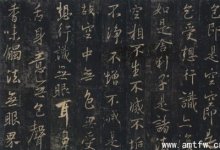 即是空空即是
色受想行識亦
如是舍利子是諸
空相不生不滅不垢
不淨不增不減是
故空中無色無受
想行識無眼耳
舌身意無色聲
香味觸法無眼界
www.amtfw.com